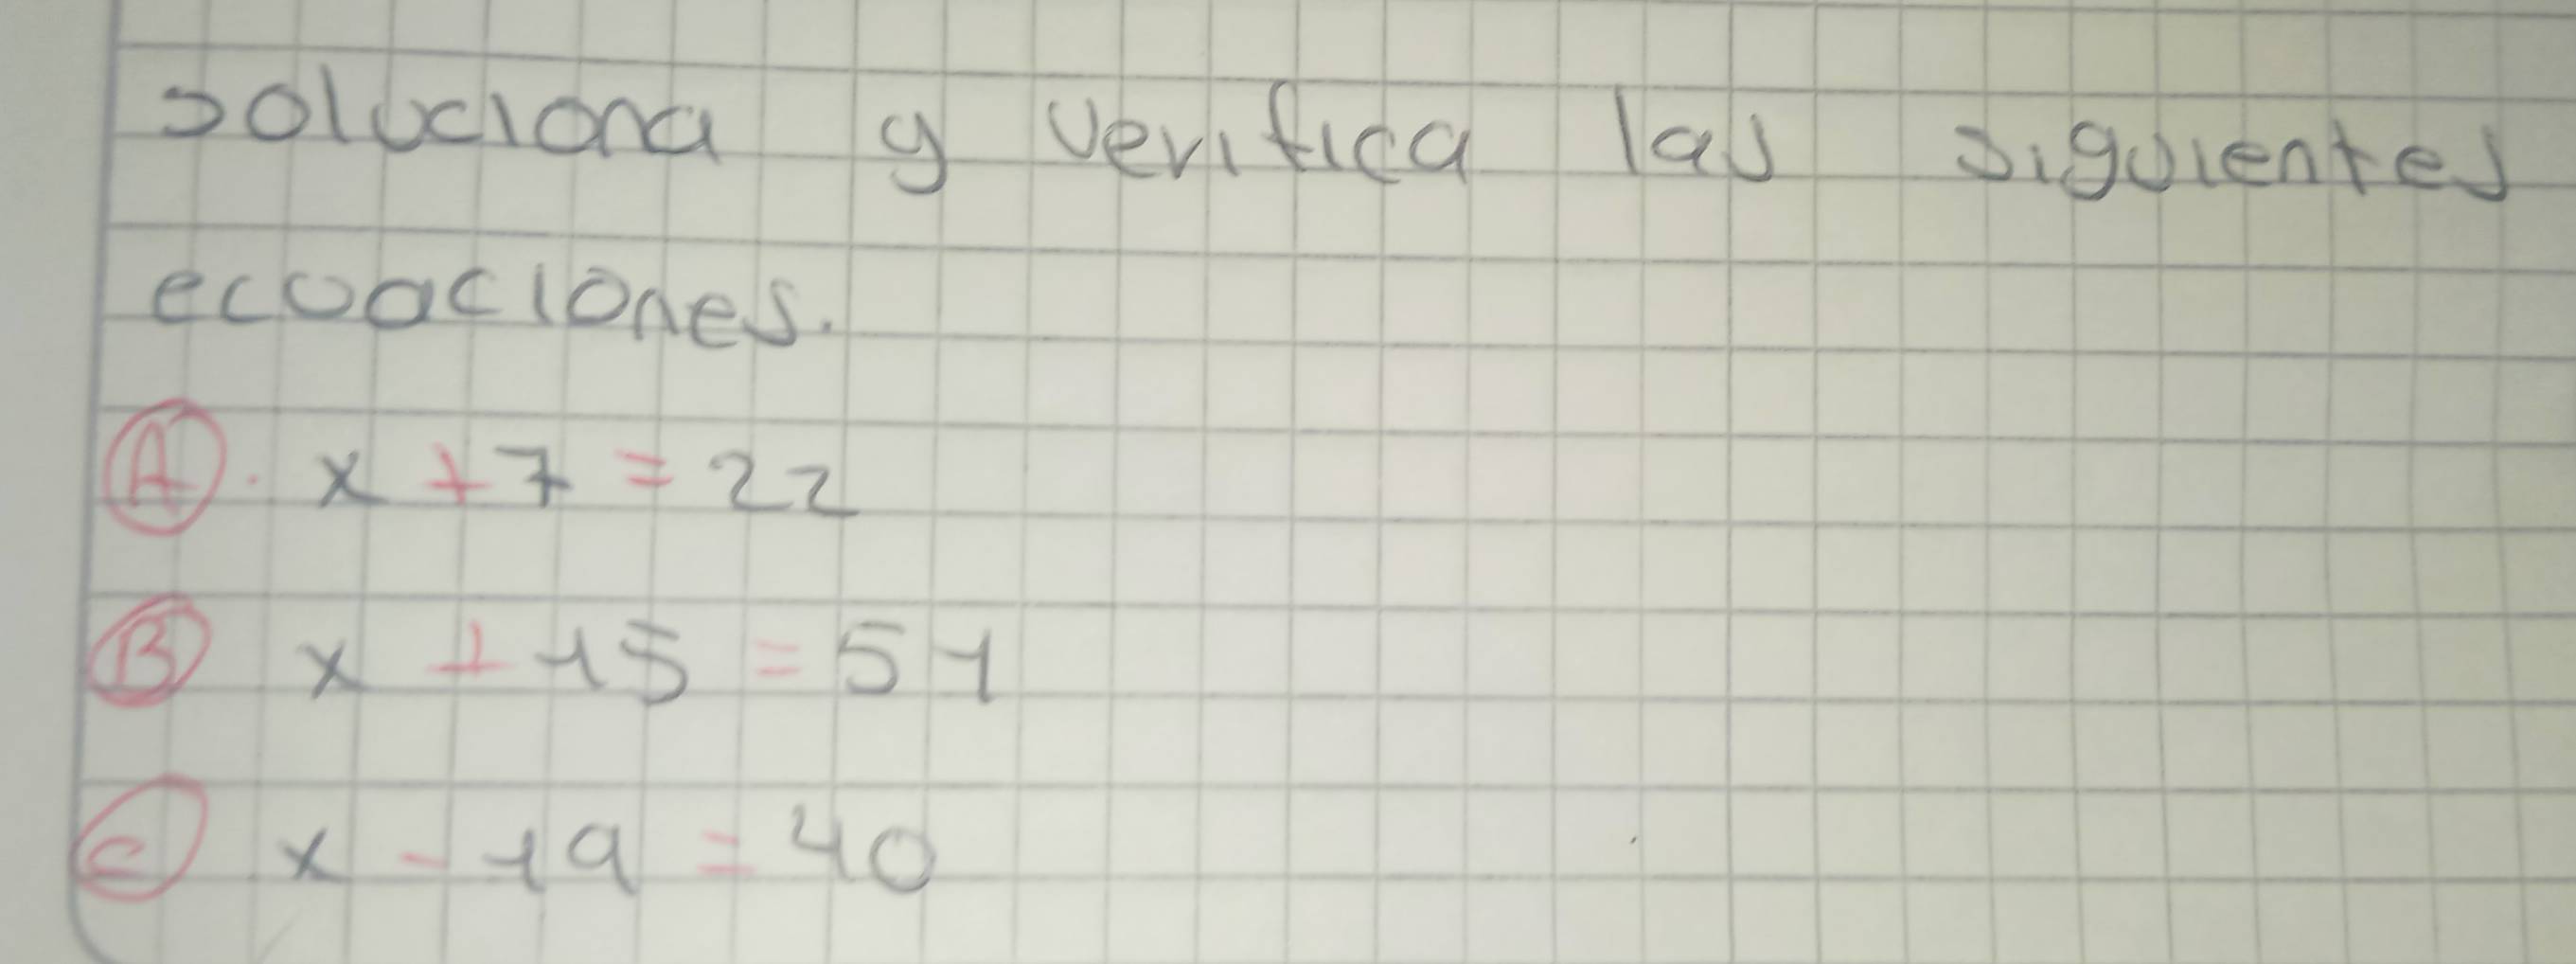 soluciona y verifica las siguientes
ecuaciones.
A. x + 7 = 22
B x + 15 = 51
C x - 19 = 40